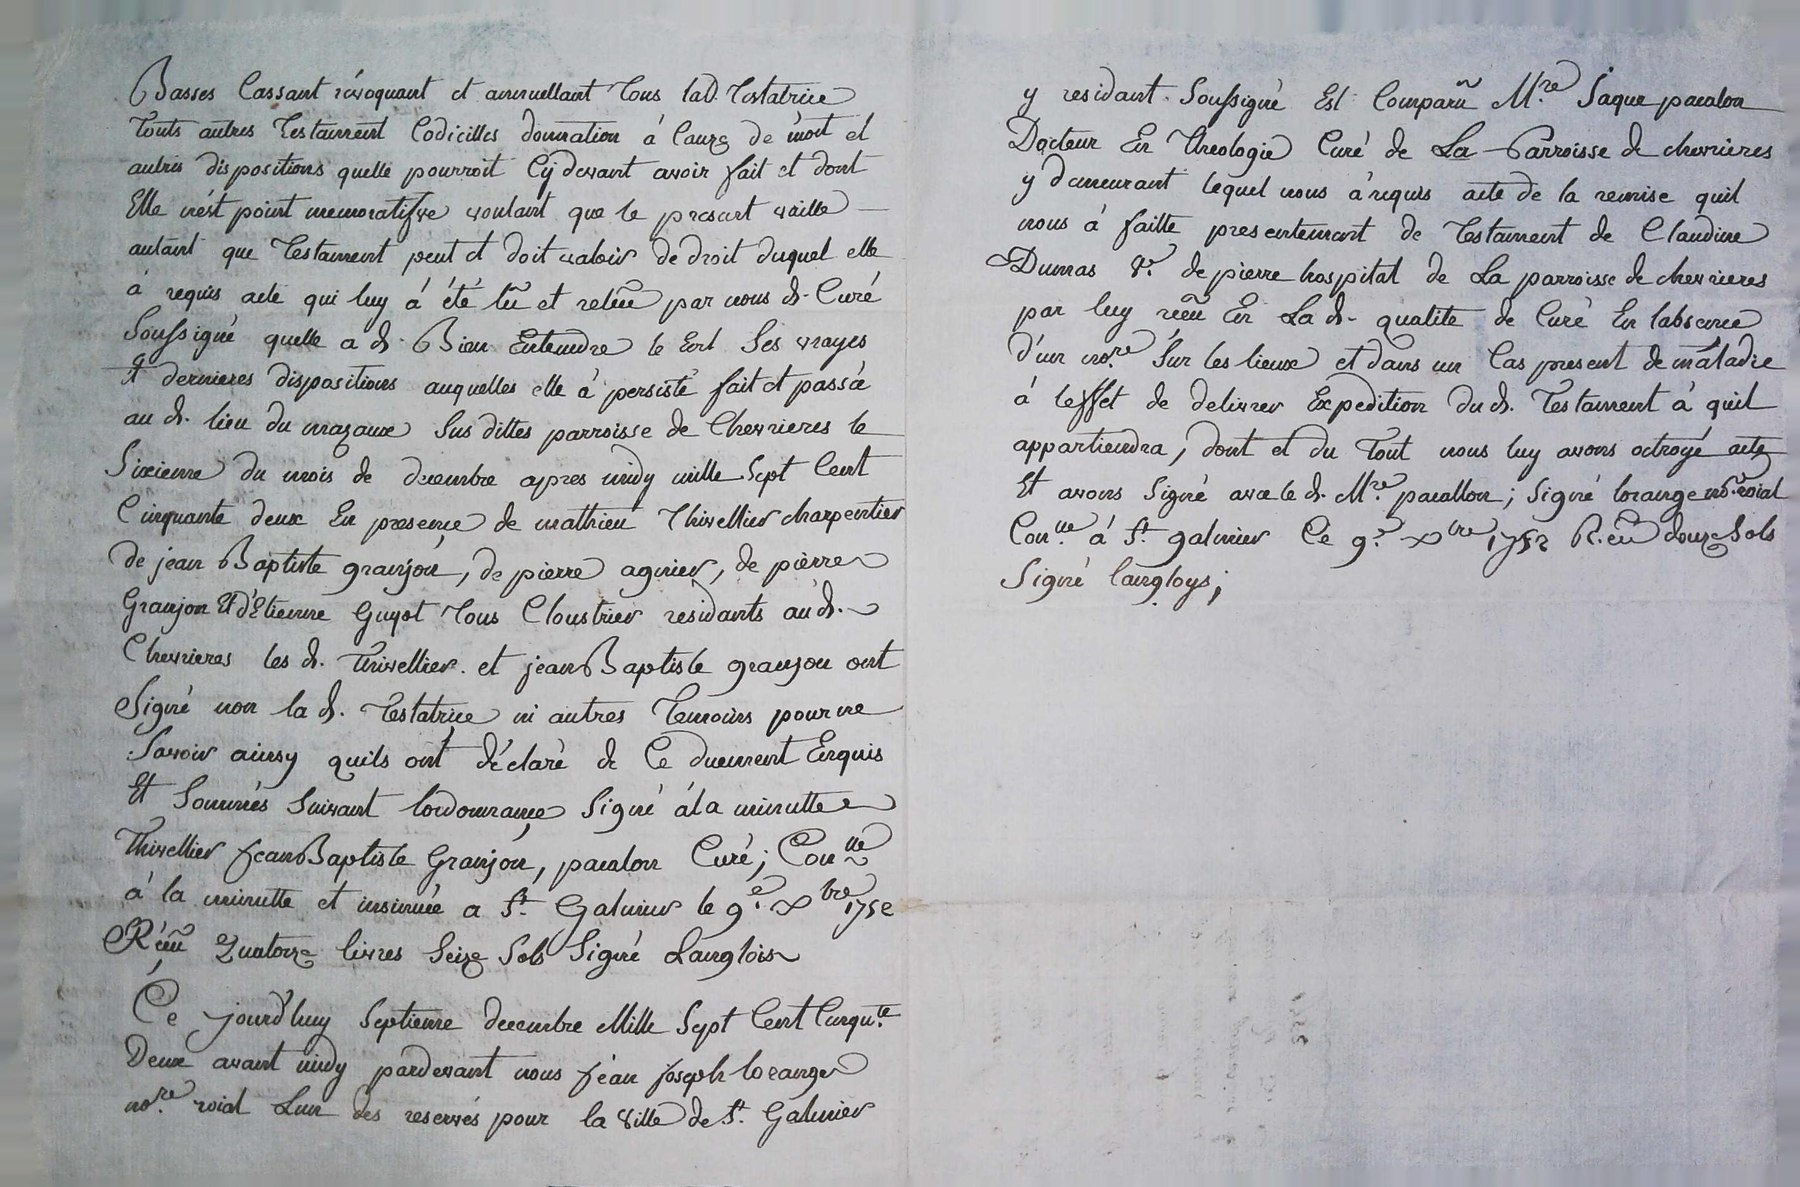 Basses Cassant révoquant et annuellant Tous lad. Testatrice
Touts autres Testament Codicilles donnation à Cause de mort et
autres dispositions quelle pourroit Cy devant avoir fait et dont
Elle n'est point memoratifve voulant que le present vaille
autant que Testament peut et doit valoir de droit duquel elle
à requis acte qui luy à été lû et releüe par nous d. Curé
Soussigné quelle a d. Bien Entendre le Ses vrayes
Et dernieres dispositions auquelles elle à persisté fait et passée
au d. lieu du mazaux Sus dittes parroisse de Chevrieres le
Sixieme du mois de decembre apres midy mille Sept Cent
Cinquante deux En presence de mathieu Thivellier charpentier
de jean Baptiste granjon, de pierre agnier, de pierre
Granjon Et d'Etienne Guyot Tous Cloustrier residants au d.
Chevrieres les d. Thivellier et jean Baptiste granjon ont
Signé non la d. Testatrice ni autres Temoins pour ne
Savoir ainsy quils ont déclaré de Ce duement Enquis
Et Sommés Suivant lordonnance Signé à la minutte
Thivellier jean Baptiste Granjon, paualon Curé; Con.lle
à la minutte et insinuée a St. Galmier le 9.e Xbre 1752
Réçu Quatorze livres Seize Sols Signé Langlois
Ce jourd'huy Septieme decembre Mille Sept Cent Cinqu.te
Deux avant midy pardevant nous jéan joseph lorange
no.re roial Lun des reservés pour la ville de St. Galmier
y residant Soussigné Est Comparu M.re Jaque paualon
Docteur En Theologie Curé de La Parroisse de chevrieres
y demeurant lequel nous à requis acte de la remise quil
nous à faitte presentement de Testament de Claudine
Dumas v.e de pierre hospital de La parroisse de chevrieres
par luy réçu En La d. qualité de Curé En labsence
d'un no.re Sur les lieux et dans un Cas present de maladie
à leffet de delivrer Expedition du d. Testament à quil
appartiendra, dont et du Tout nous luy avons octroyé acte
Et avons Signé avec le d. M.re paualon; Signé lorange no.re roial
Con.lle à St. galmier Ce 9.e Xbre 1752 R.çu douze Sols
Signé langloys;